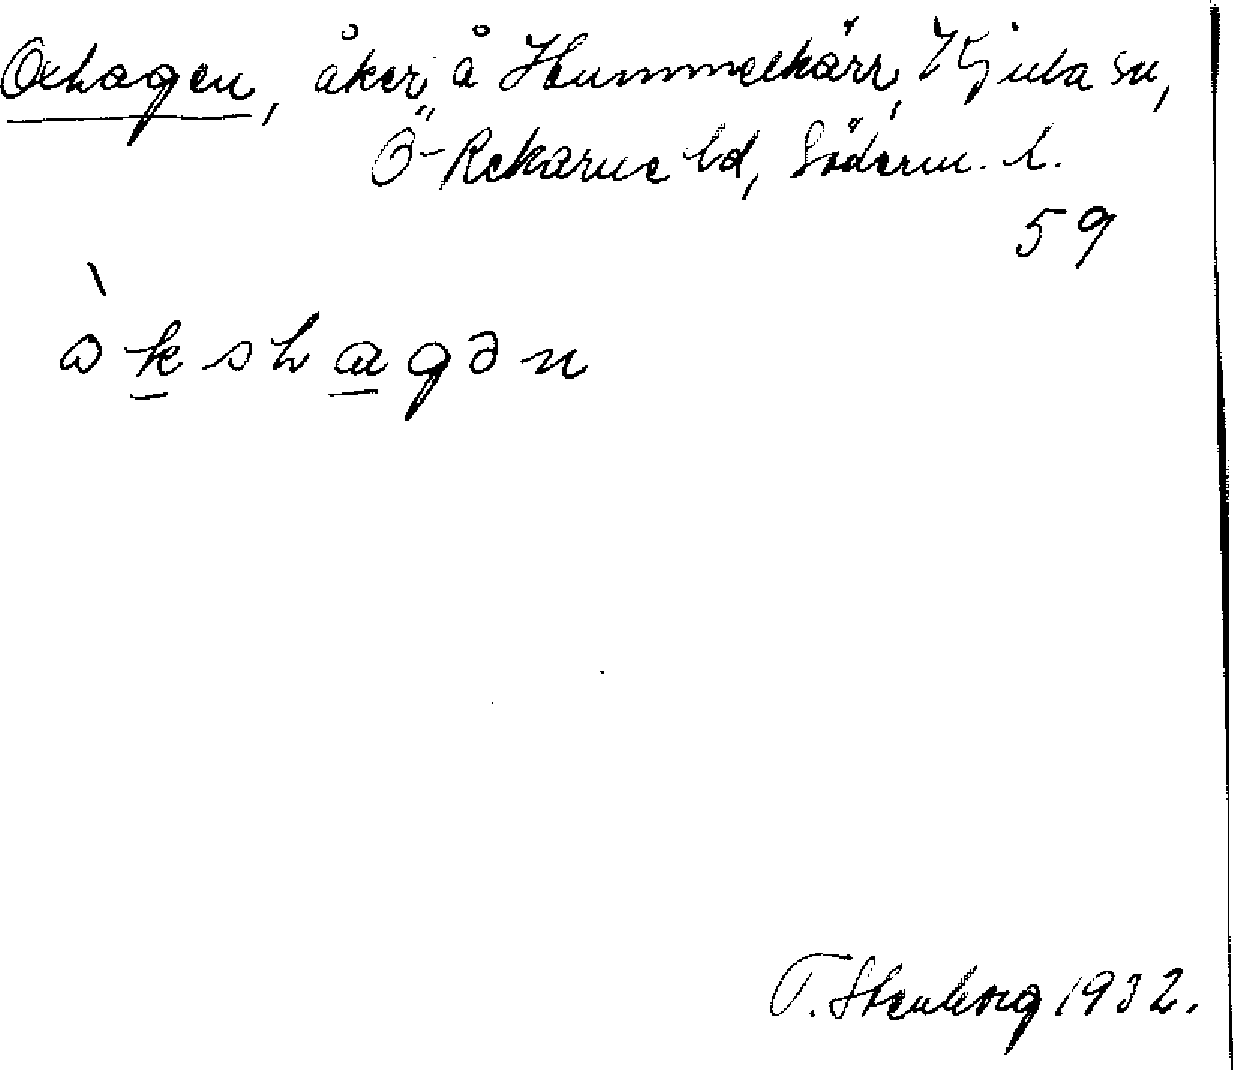 Oxhagen, åker, å Hummelkärr, Kjula sn,
Ö-Rekarne hd, Söderm. l.
59
ò k s h a g ə n
T. Stenborg 1932.